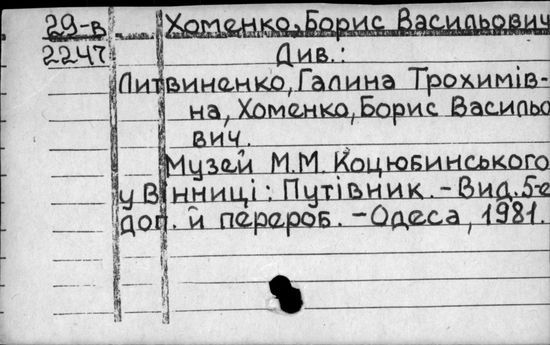 29-в Хоменко, Борис Васильович
2247 Див.:
Литвиненко, Галина Трохимів-
на, Хоменко, Борис Васильо
вич.
Музей М.М. Коцюбинського
у Вінниці: Путівник. - Вид. 5-е
доп. й перероб. - Одеса, 1981.